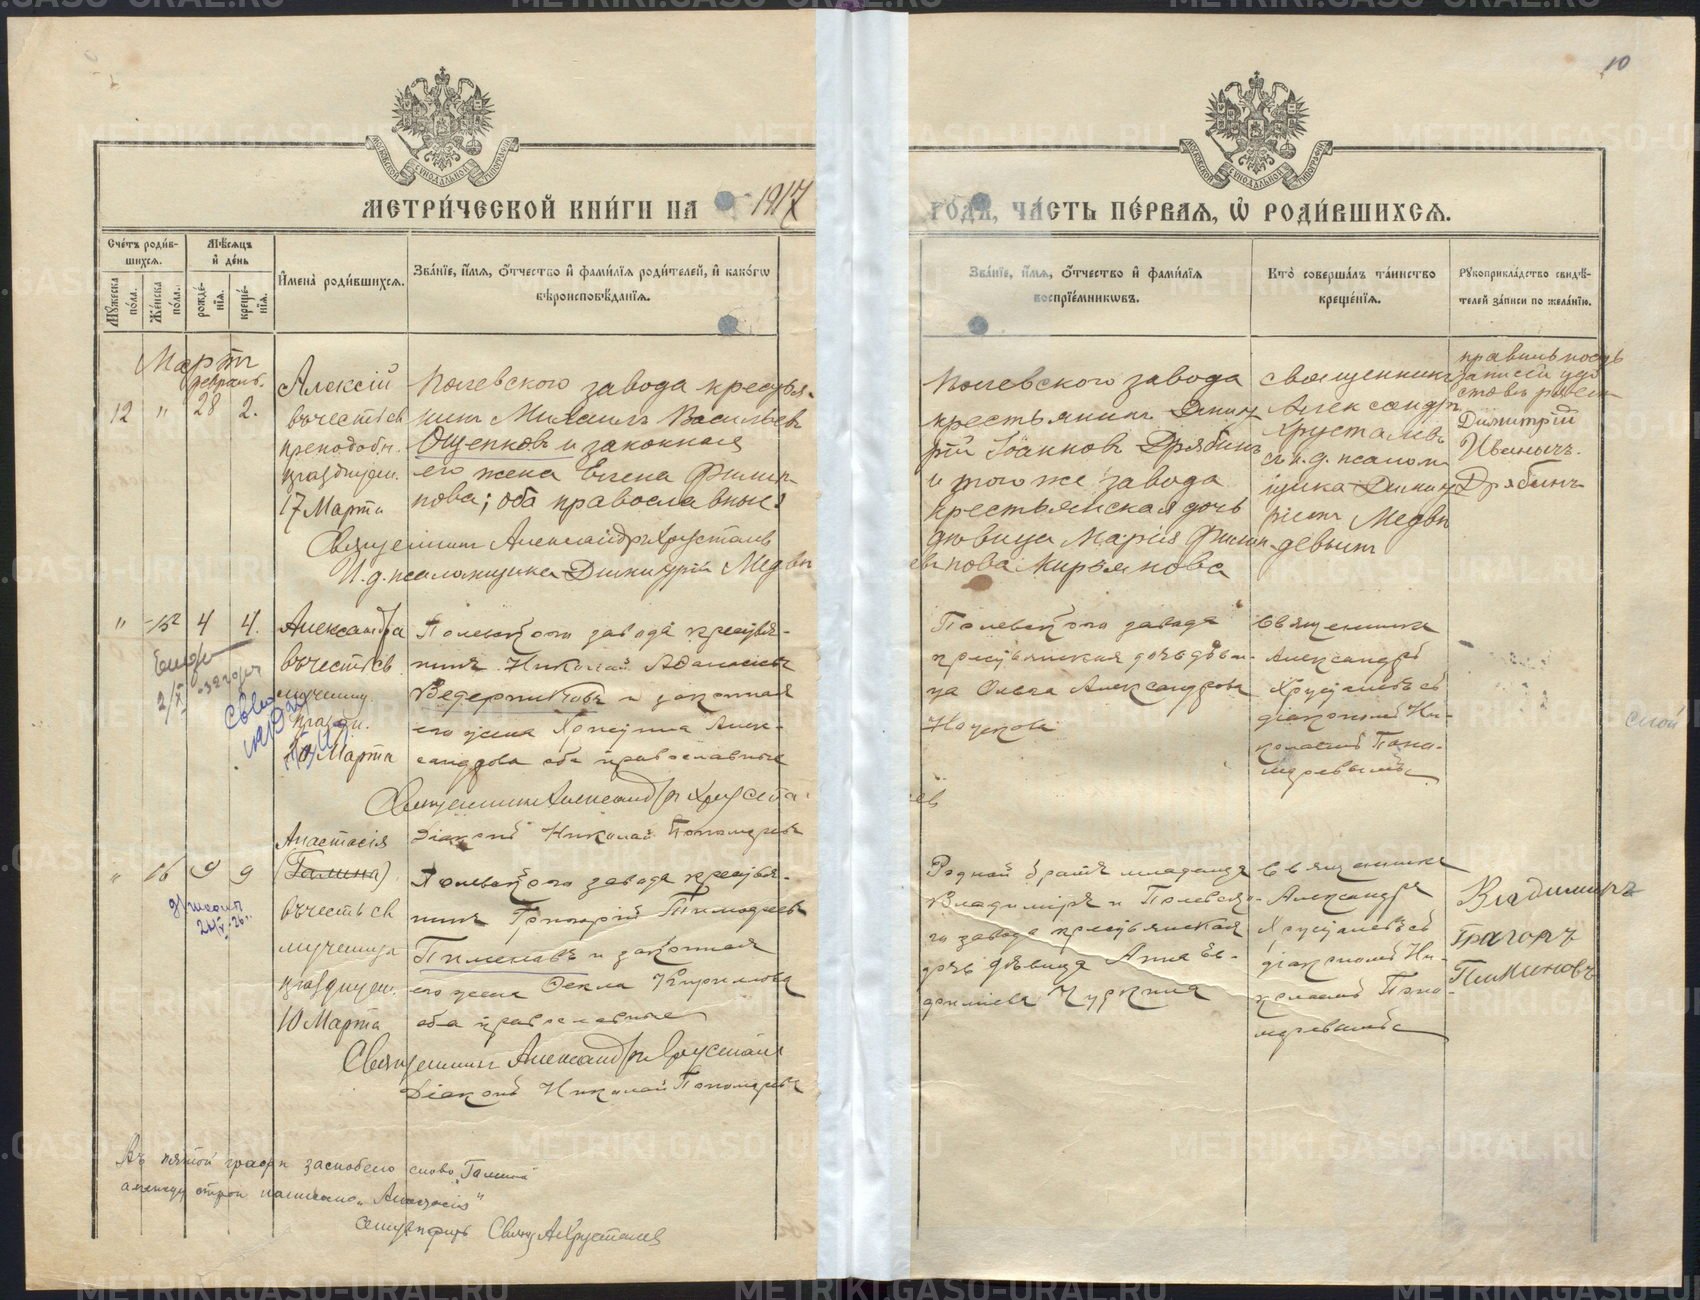 10
МОСКОВСКОЙ СѴНОДАЛЬНОЙ ТИПОГРАФІИ
МОСКОВСКОЙ СѴНОДАЛЬНОЙ ТИПОГРАФІИ
МЕТРИ́ЧЕСКОЙ КНИ́ГИ НА 1917
ГОДЪ, ЧА́СТЬ ПЕ́РВАЯ, Ѡ҆ РОДИ́ВШИХСЯ.
Сче́тъ роди́в-
шихся.
Му́жеска по́ла.
Же́нска по́ла.
Мѣ́сяцъ и҆ де́нь
рожде́-нїя.
креще́-нїя.
И҆мена̀ роди́вшихся.
Зва́нїе, и҆́мя, ѻ҆́тчество и҆ фами́лїя роди́телей, и҆ како́гѡ
вѣроисповѣ́данїя.
Зва́нїе, и҆́мя, ѻ҆́тчество и҆ фами́лїя
воспрїе́мникѡвъ.
Кто̀ соверша́лъ та́инство
креще́нїя.
Рꙋкоприкла́дство свидѣ́-
телей за́писи по жела́нїю.
Мартъ
феврал.
12 " 28 2.
Алексій
въ честь св
преподобн.
празднуем.
17 Марта
Полевского завода крестья-
нинъ Михаилъ Васильевъ
Ощепковъ и законная
его жена Елена Филип-
пова; оба православные
Священникъ Александръ Хрусталев
И. д. псаломщика Димитрій Медвѣ
девъ
Полевского завода
крестьянинъ Димит
рій Іоанновъ Дрябинъ
и того же завода
крестьянская дочь
дѣвица Марія Филип-
пова Кирьянова
священникъ
Александръ
Хрусталевъ
съ и. д. псалом
щика Димит
ріемъ Медвѣ
девымъ
правильность
записи удо
стовѣряю
Димитрій
Иванычъ
Дрябинъ
" 15 4 4.
Александра
въ честь св.
мученицу
праздн.
Марта
Полевского завода крестья-
нинъ Николай Аѳанасьевъ
Ведерниковъ и законная
его жена Христина Алек-
сандрова оба православные
Священникъ Александръ Хруста
левъ
Діаконъ Николай Пономаревъ
Полевского завода
крестьянская дочь дѣви-
ца Ольга Александрова
Священникъ
Александръ
Хрусталевъ съ
діакономъ Ни-
колаемъ Поно-
маревымъ
" 16 9 9
Анастасія
(Галина)
въ честь св
мученицы
празднуем.
10 Марта
Полевского завода крестья-
нинъ Григорій Тимоѳеевъ
Пименовъ и законная
его жена Ѳекла Кирилова
оба православные
Священникъ Александръ Хрусталев
Діаконъ Николай Пономаревъ
Родной братъ младенца
Владиміръ и Полевско-
го завода крестьянская
дочь дѣвица Анна Ев-
Чуркина
Священникъ
Александръ
Хрусталевъ съ
діакономъ Ни-
колаемъ Поно
маревымъ
Владимиръ
Григоръ
Пименовъ
Въ пятой графѣ заскоблено слово "Галина"
а между строк написано "Анастасія"
Свящ. А. Хрусталев
METRIKI.GASO-URAL.RU